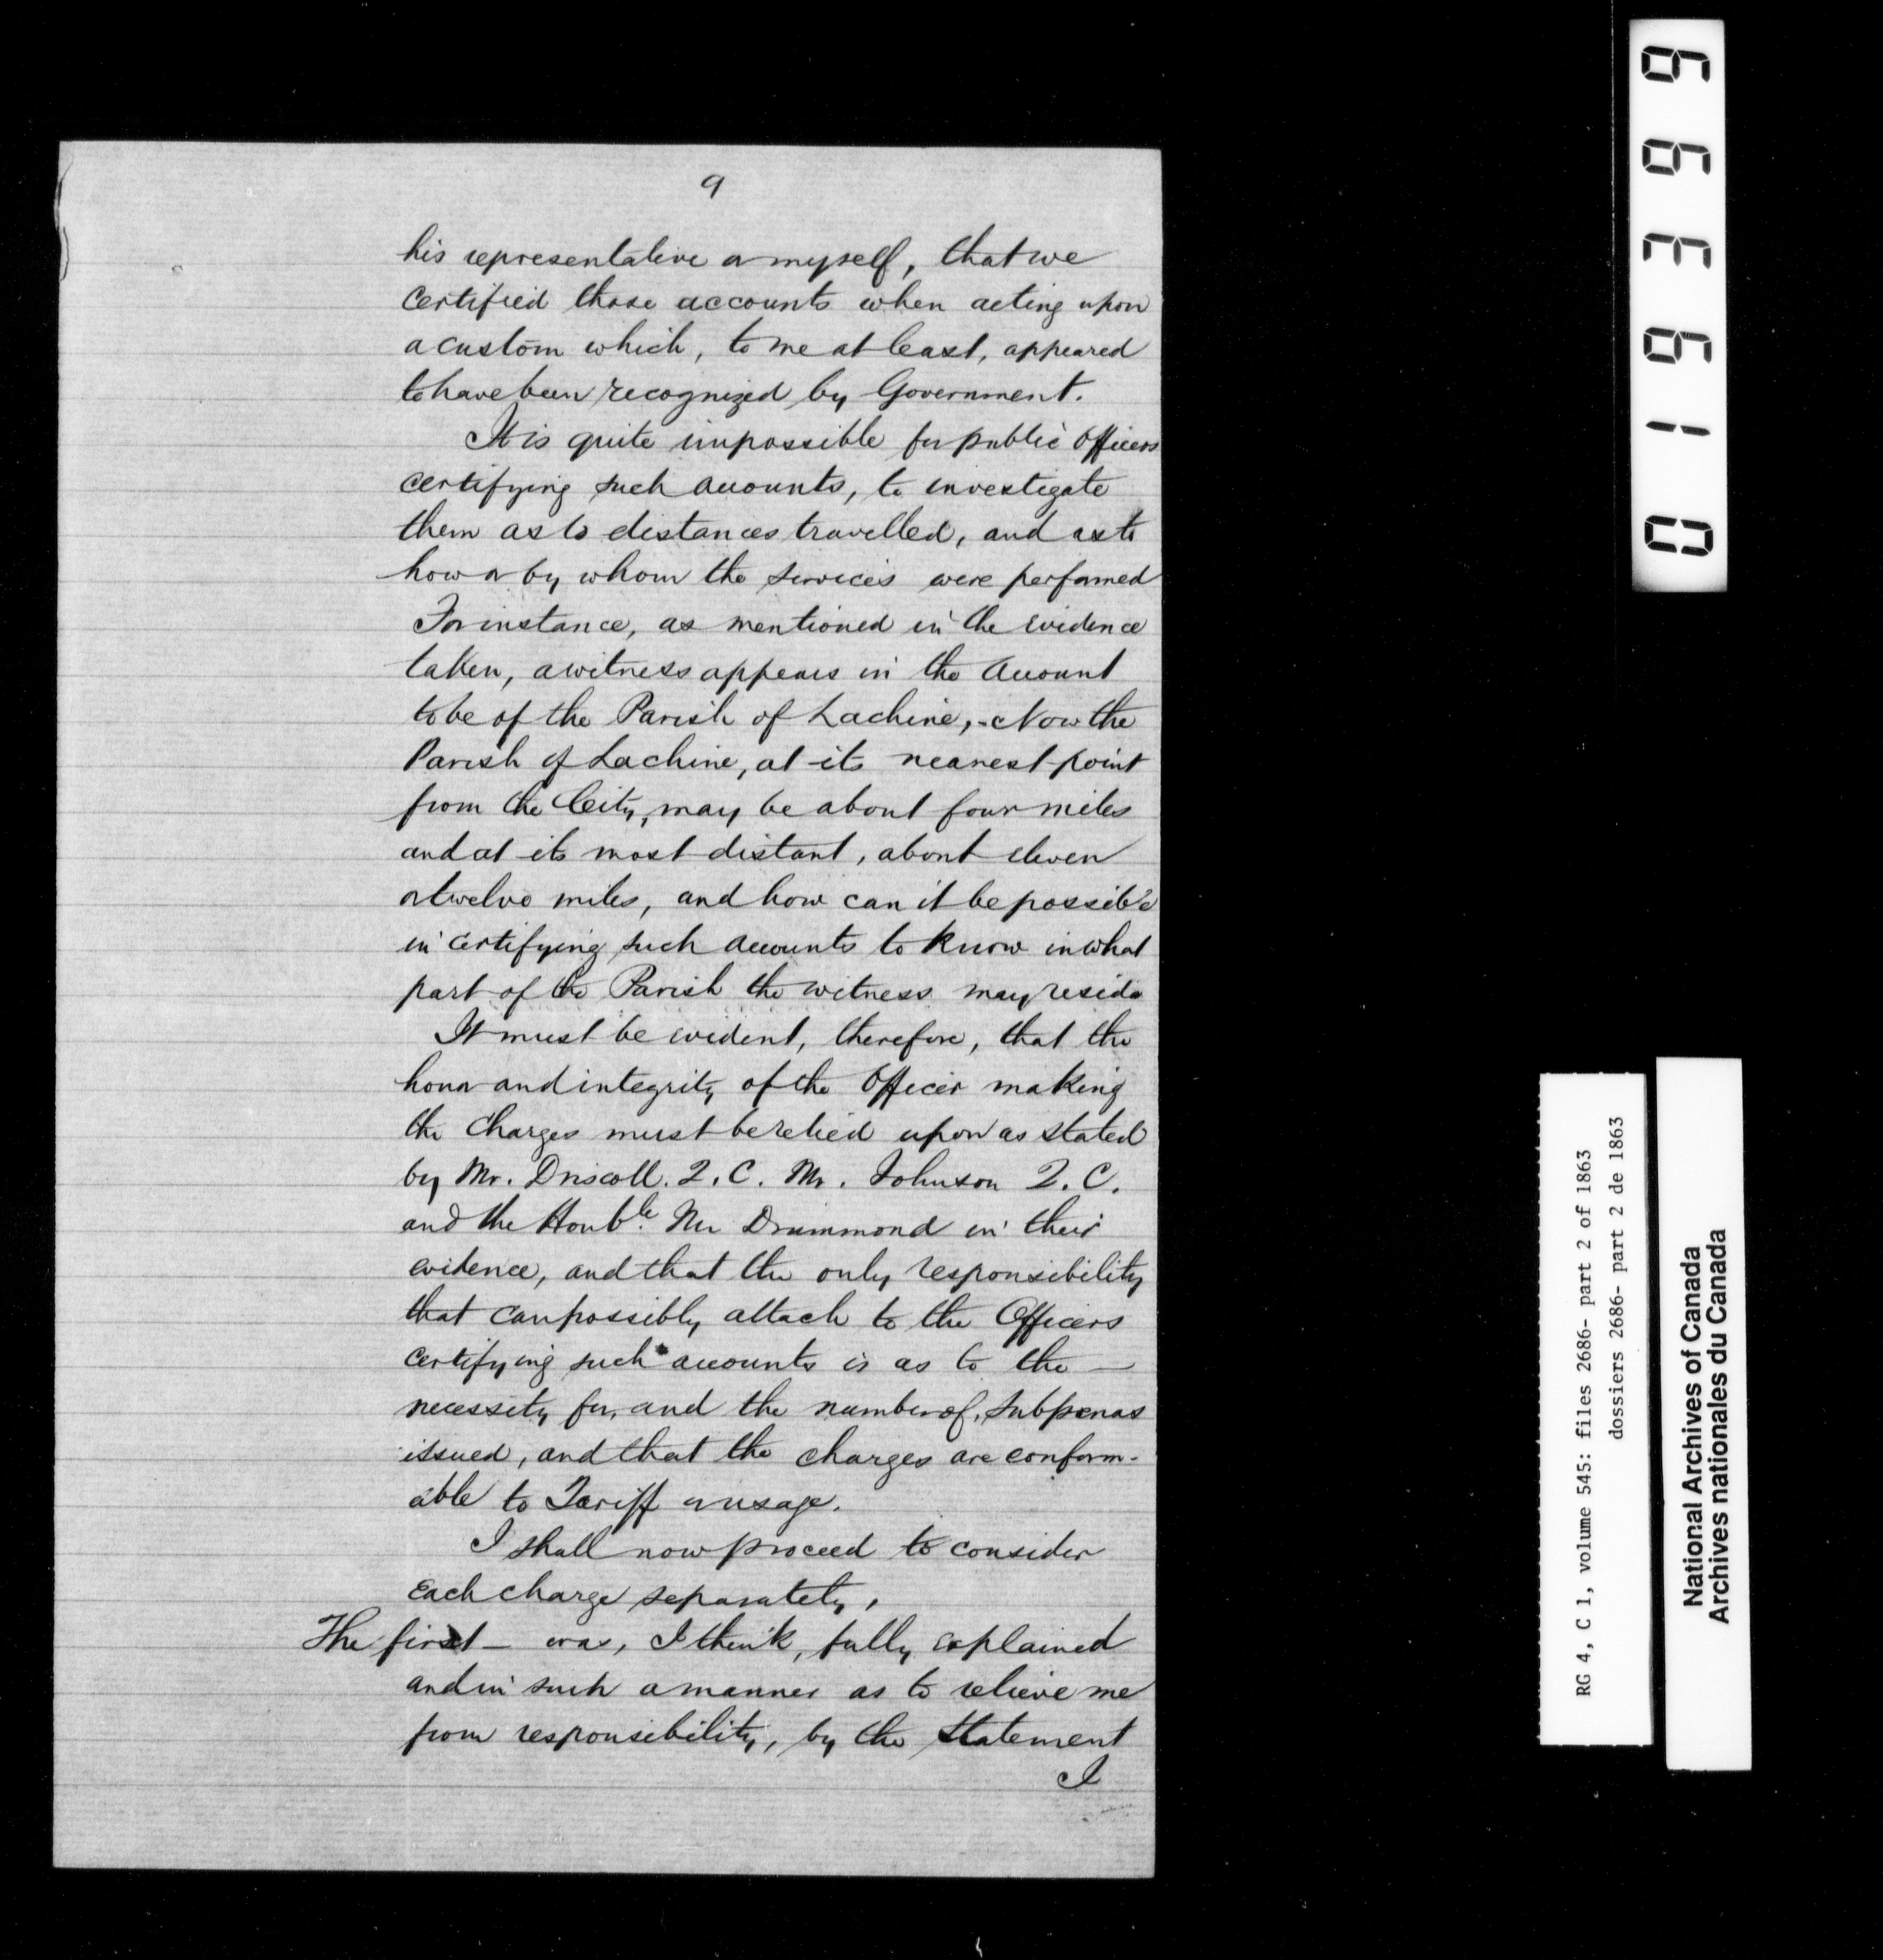 9
his representative or myself, that we
certified those accounts when acting upon
a custom which, to me at least, appeared
to have been recognized by Government.
It is quite impossible for public Officers
certifying such accounts, to investigate
them as to distances travelled, and as to
how or by whom the services were performed
For instance, as mentioned in the evidence
taken, a witness appears in the Account
to be of the Parish of Lachine, - Now the
Parish of Lachine, at its nearest point
from the City, may be about four miles
and at its most distant, about eleven
or twelve miles, and how can it be possible
in certifying such accounts to know in what
part of the Parish the witness may reside
It must be evident, therefore, that the
honor and integrity of the Officer making
the Charges must be relied upon as stated
by Mr. Driscoll. Q. C. Mr. Johnson Q. C.
and the Honble. Mr Drummond in their
evidence, and that the only responsibility
that can possibly attach to the Officers
certifying such accounts is as to the —
necessity for, and the number of, Subpenas
issued, and that the charges are conform-
able to Tariff or usage.
I shall now proceed to consider
each charge separately,
The first — was, I think, fully explained
and in such a manner as to relieve me
from responsibility, by the Statement
I
019399
RG 4, C 1, volume 545: files 2686- part 2 of 1863
dossiers 2686- part 2 de 1863
National Archives of Canada
Archives nationales du Canada